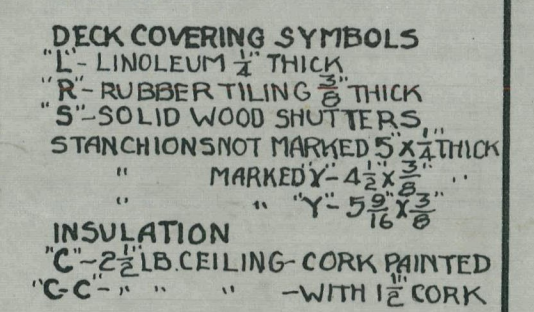 DECK COVERING SYMBOLS
"L"- LINOLEUM 1/4" THICK
"R"- RUBBER TILING 3/8" THICK
"S"-SOLID WOOD SHUTTERS
STANCHIONS NOT MARKED 5"X 1/4" THICK
" MARKED "Y"- 4 1/2" X 3/8" "
" " "Y"- 5 9/16" X 3/8"
INSULATION
"C"-2 1/2 LB. CEILING- CORK PAINTED
"C-C"- " " " -WITH 1 1/2" CORK